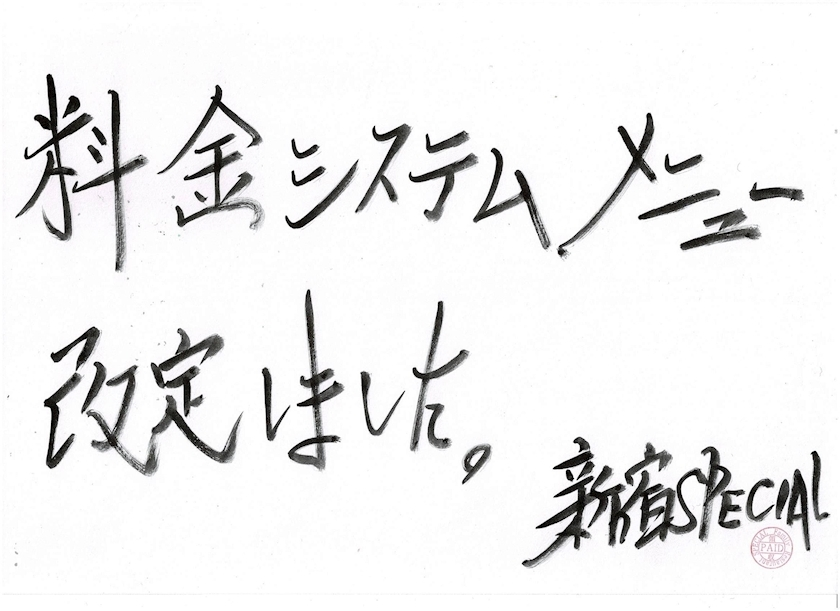 料金システムメニュー
改定しました。
新宿SPECIAL
PAID